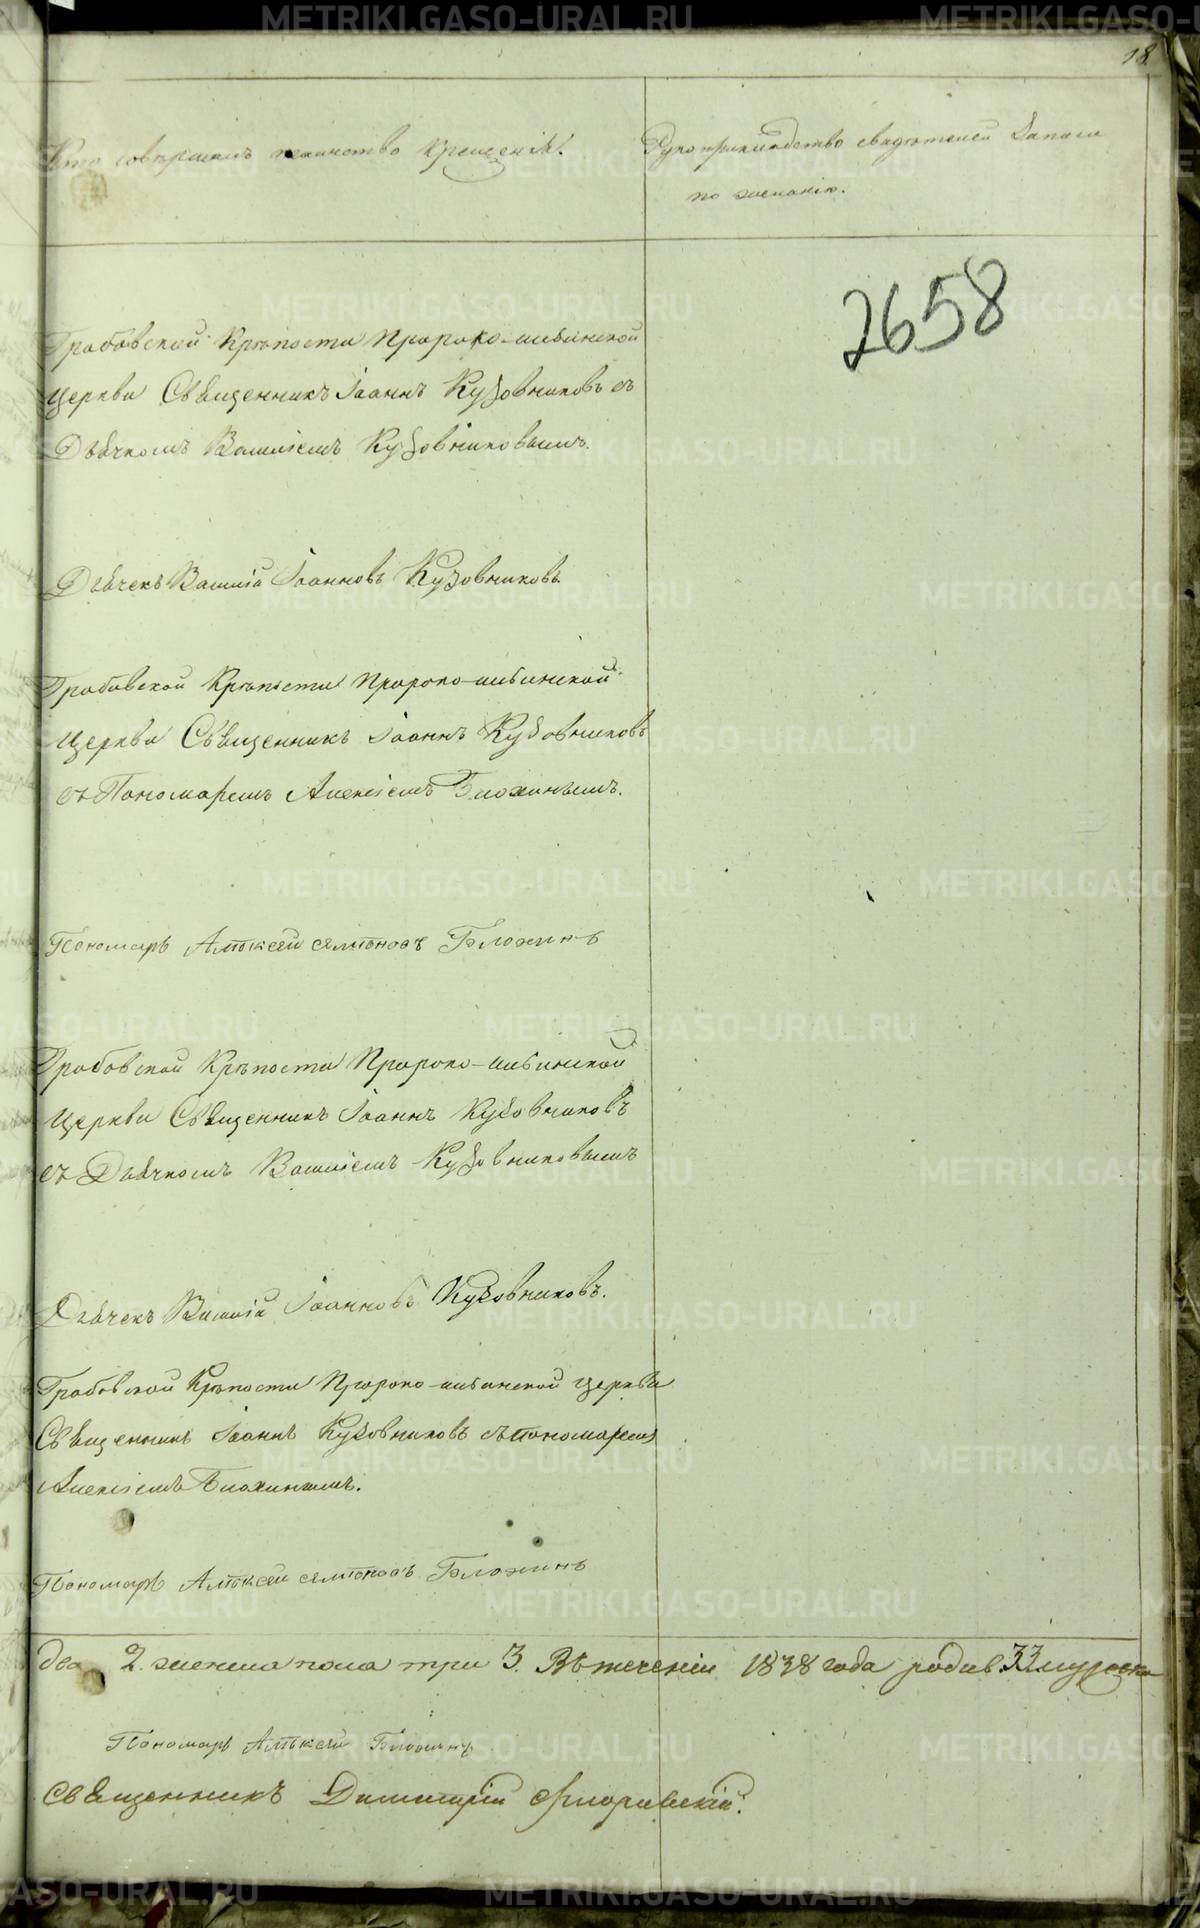 18
Кто совершалъ таинство крещенія.
Рукоприкладство свидѣтелей записи
по желанію.
2658
Грабовской Крѣпости Пророко-ильинской
Церкви Священникъ Іоаннъ Кузовниковъ съ
Дьячкомъ Василіемъ Кузовниковымъ.
Дьячекъ Василій Іоанновъ Кузовниковъ
Грабовской Крѣпости Пророко-ильинской
Церкви Священникъ Іоаннъ Кузовниковъ
съ Пономаремъ Алексіемъ Блохинымъ.
Пономарь Алѣксей Блохинъ
Грабовской Крѣпости Пророко-ильинской
Церкви Священникъ Іоаннъ Кузовниковъ
съ Дьячкомъ Василіемъ Кузовниковымъ
Дьячекъ Василій Іоанновъ Кузовниковъ.
Грабовской Крѣпости Пророко-ильинской церкви
Священникъ Іоаннъ Кузовниковъ съ пономаремъ
Алексіемъ Блохинымъ.
Пономарь Алѣксей Блохинъ
два 2. женска пола три 3. Въ теченіи 1838 года родив. 33 мужеска
Пономарь Алѣксей Блохинъ
Священникъ Димитрій
METRIKI.GASO-URAL.RU